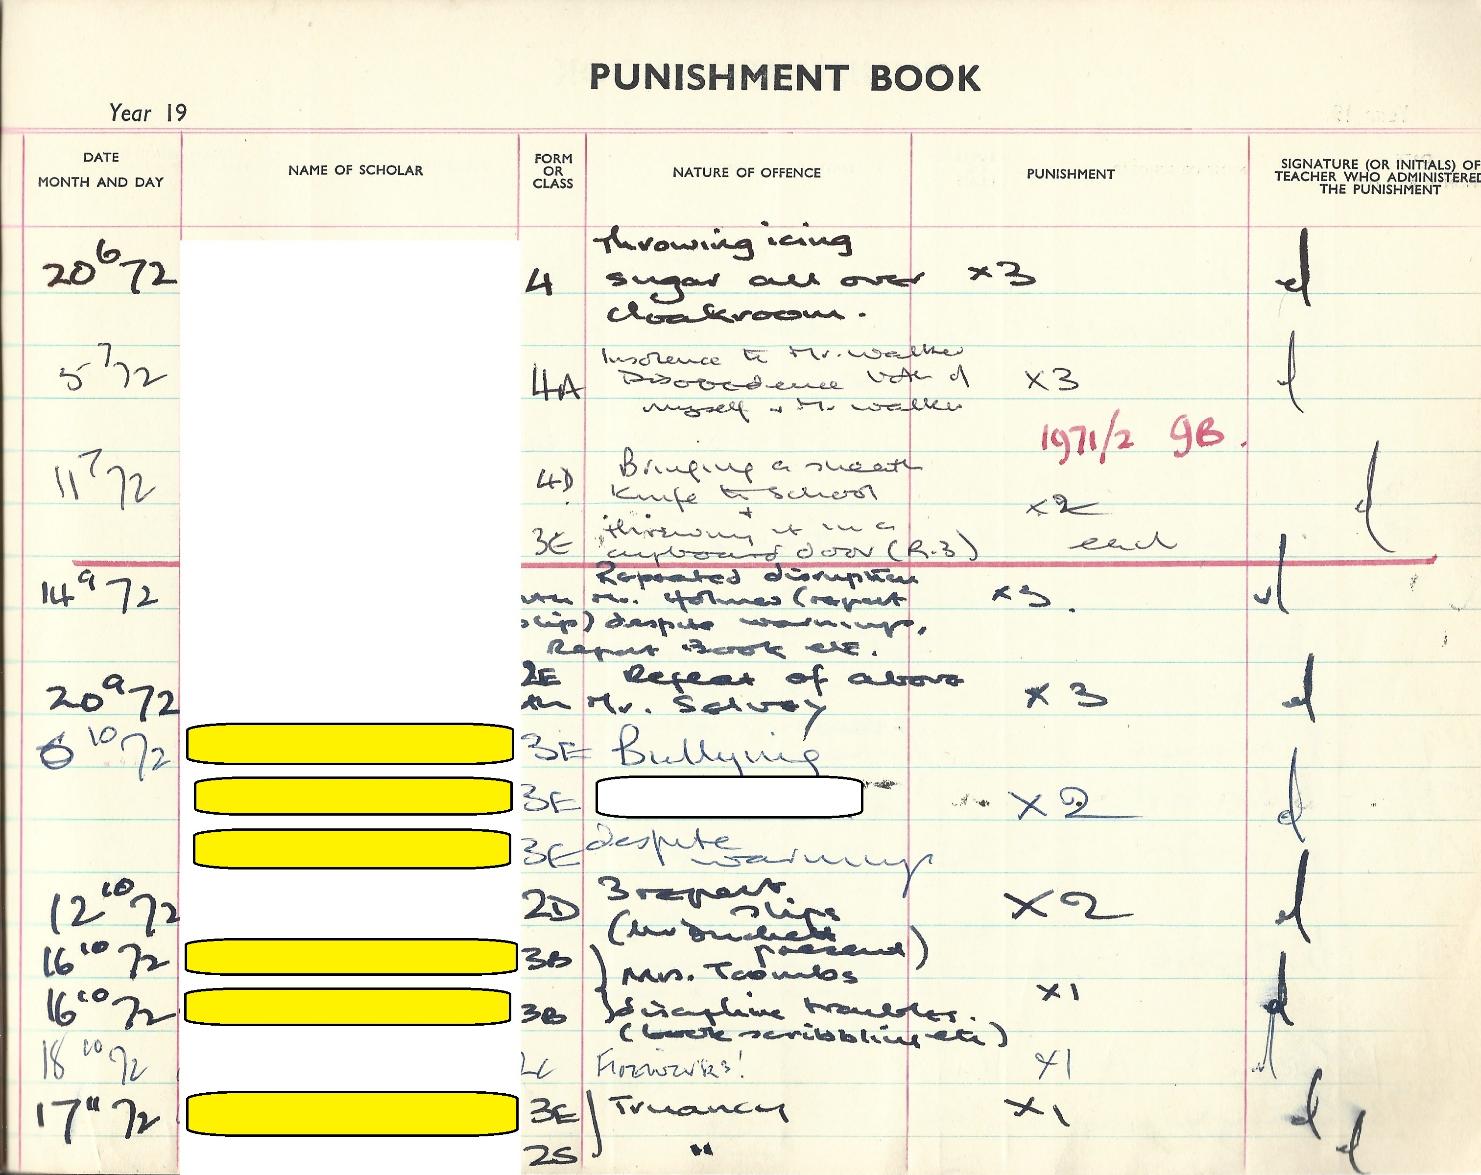 PUNISHMENT BOOK
Year 19
DATE
MONTH AND DAY
NAME OF SCHOLAR
FORM
OR
CLASS
NATURE OF OFFENCE
PUNISHMENT
SIGNATURE (OR INITIALS) OF
TEACHER WHO ADMINISTERED
THE PUNISHMENT
Throwing icing
20 6 72 4 sugar all over x3
cloakroom.
Insolence to Mr. Walker
5 7 72 4A Disobedience both of x3
myself + Mr. Walker
1971/2 GB.
11 7 72 4D Bringing a sheath
Knife to School x2
+
3E throwing it in a each
cupboard door (R.3)
Repeated disruption
14 9 72 with Mr. Holmes (report x3.
slip) despite warnings,
Report Book etc.
2E Repeat of above
20 9 72 Mr. Selvey x3
6 10 72 3E Bullying
3E x2
3E despite
warnings
12 10 72 2D 3 report x2
slips
(Mr present)
16 10 72 3B Mrs. Toombs
x1
16 10 72 3B discipline troubles.
(book scribbling etc)
18 10 72 Fireworks! x1
17 11 72 3E Truancy x1
2S "